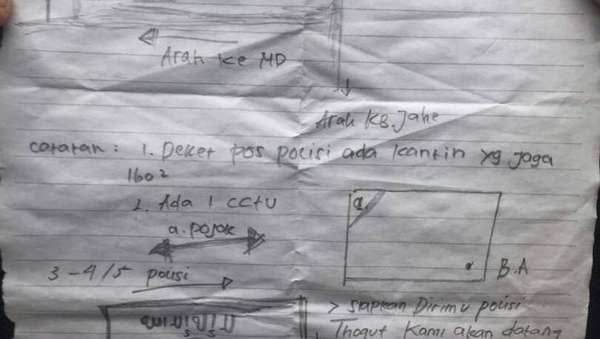 Arah ke MD
Arah KB.Jahe
catatan : 1. Deket pos polisi ada kantin yg jaga
1bo2
2. Ada 1 CCTV
a. pojok
a.
3 - 4/5 polisi
B.A
> Siapkan Dirimu polisi
Thogut Kami akan datang